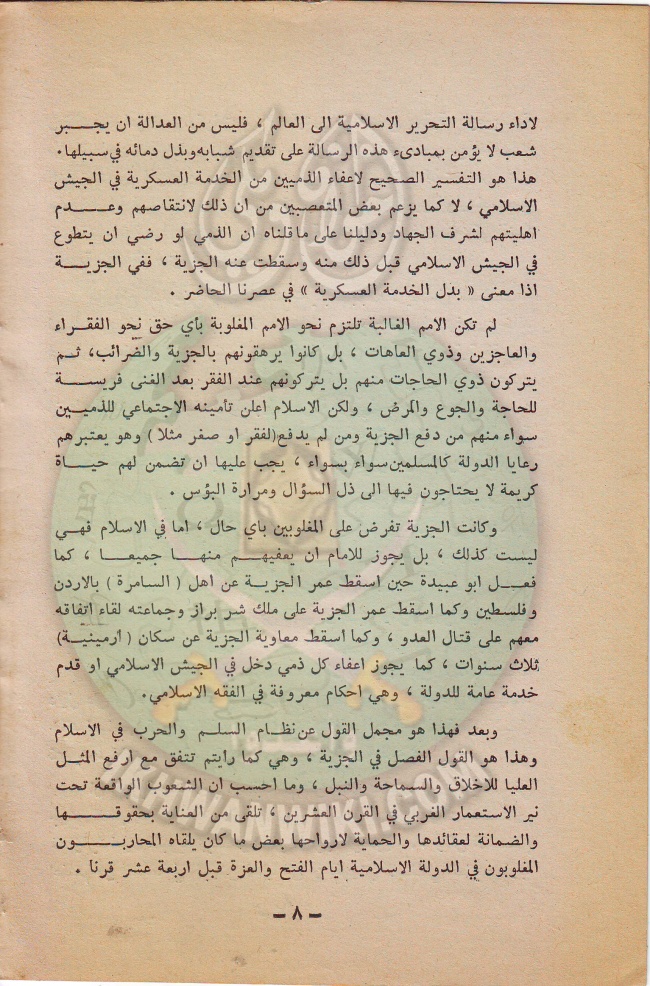 لاداء رسالة التحرير الاسلامية الى العالم ، فليس من العدالة ان يجبر
شعب لا يؤمن بمبادىء هذه الرسالة على تقديم شبابه وبذل دمائه في سبيلها.
هذا هو التفسير الصحيح لاعفاء الذميين من الخدمة العسكرية في الجيش
الاسلامي ، لا كما يزعم بعض المتعصبين من ان ذلك لانتقاصهم وعدم
اهليتهم لشرف الجهاد ودليلنا على ماقلناه ان الذمي لو رضي ان يتطوع
في الجيش الاسلامي قبل ذلك منه وسقطت عنه الجزية ، ففي الجزية
اذا معنى « بدل الخدمة العسكرية » في عصرنا الحاضر .
لم تكن الامم الغالبة تلتزم نحو الامم المغلوبة بأي حق نحو الفقراء
والعاجزين وذوي العاهات ، بل كانوا يرهقونهم بالجزية والضرائب، ثم
يتركون ذوي الحاجات منهم بل يتركونهم عند الفقر بعد الغنى فريسة
للحاجة والجوع والمرض ، ولكن الاسلام اعلن تأمينه الاجتماعي للذميين
سواء منهم من دفع الجزية ومن لم يدفع(لفقر او صغر مثلا ) وهو يعتبرهم
رعايا الدولة كالمسلمين سواء بسواء ، يجب عليها ان تضمن لهم حياة
كريمة لا يحتاجون فيها الى ذل السؤال ومرارة البؤس .
وكانت الجزية تفرض على المغلوبين باي حال ، اما في الاسلام فهي
ليست كذلك ، بل يجوز للامام ان يعفيهم منها جميعا ، كما
فعل ابو عبيدة حين اسقط عمر الجزية عن اهل ( السامرة ) بالاردن
وفلسطين وكما اسقط عمر الجزية على ملك شر براز وجماعته لقاء اتفاقه
معهم على قتال العدو ، وكما اسقط معاوية الجزية عن سكان (ارمينية)
ثلاث سنوات ، كما يجوز اعفاء كل ذمي دخل في الجيش الاسلامي او قدم
خدمة عامة للدولة ، وهي احكام معروفة في الفقه الاسلامي.
وبعد فهذا هو مجمل القول عن نظام السلم والحرب في الاسلام
وهذا هو القول الفصل في الجزية ، وهي كما رايتم تتفق مع ارفع المثل
العليا للاخلاق والسماحة والنبل ، وما احسب ان الشعوب الواقعة تحت
نير الاستعمار الغربي في القرن العشرين ، تلقى من العناية بحقوقها
والضمانة لعقائدها والحماية لارواحها بعض ما كان يلقاه المحاربون
المغلوبون في الدولة الاسلامية ايام الفتح والعزة قبل اربعة عشر قرنا .
– ٨ –